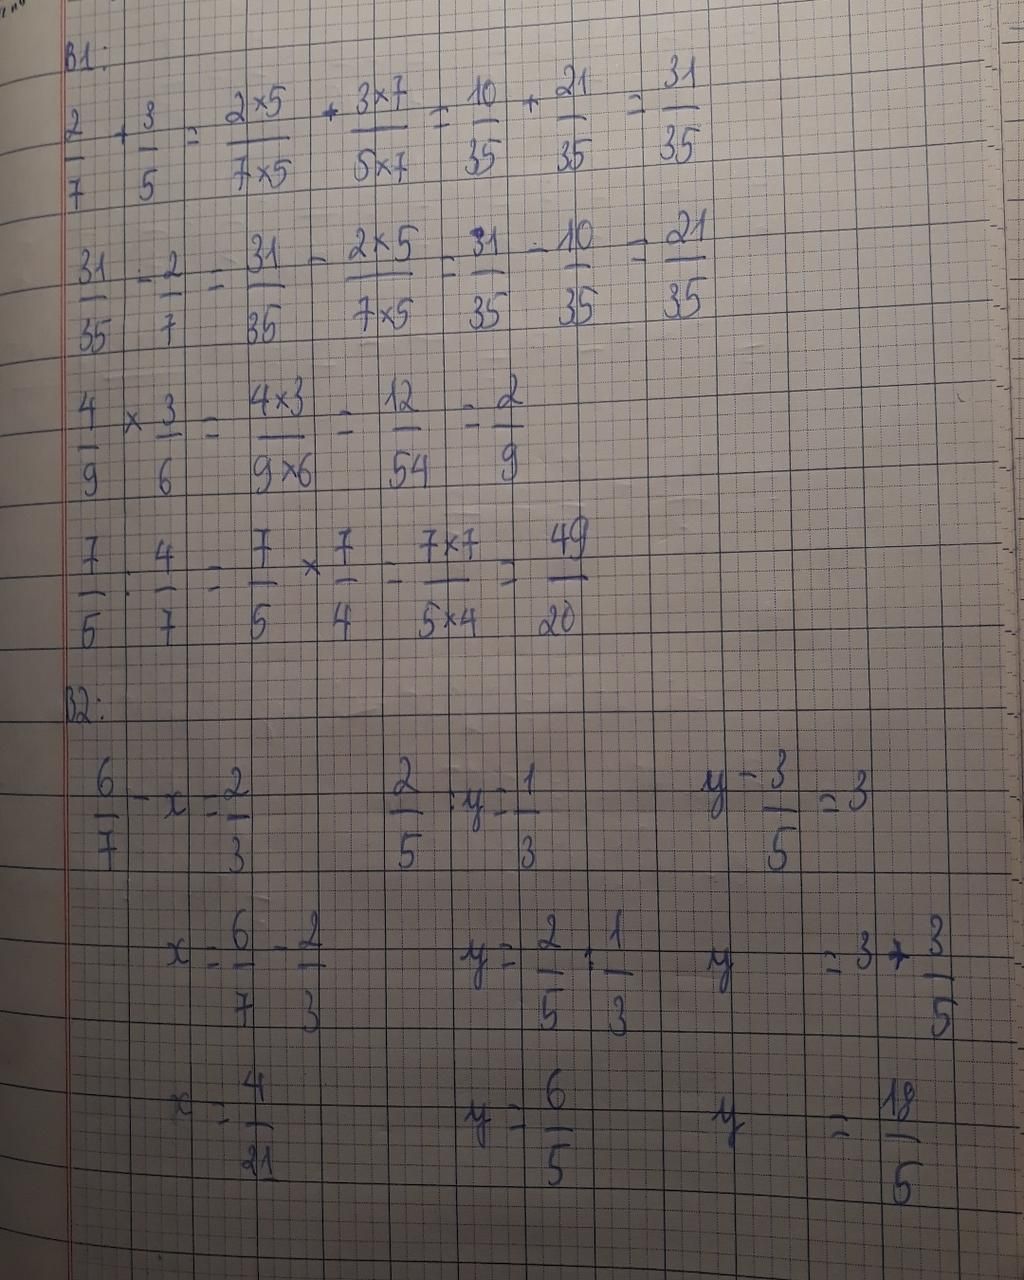 B1:
2/7 + 3/5 = 2×5/7×5 + 3×7/5×7 = 10/35 + 21/35 = 31/35
31/35 - 2/7 = 31/35 - 2×5/7×5 = 31/35 - 10/35 = 21/35
4/9 × 3/6 = 4×3/9×6 = 12/54 = 2/9
7/5 : 4/7 = 7/5 × 7/4 = 7×7/5×4 = 49/20
B2:
6/7 - x = 2/3 2/5 : y = 1/3 y - 3/5 = 3
x = 6/7 - 2/3 y = 2/5 : 1/3 y = 3 + 3/5
x = 4/21 y = 6/5 y = 18/5